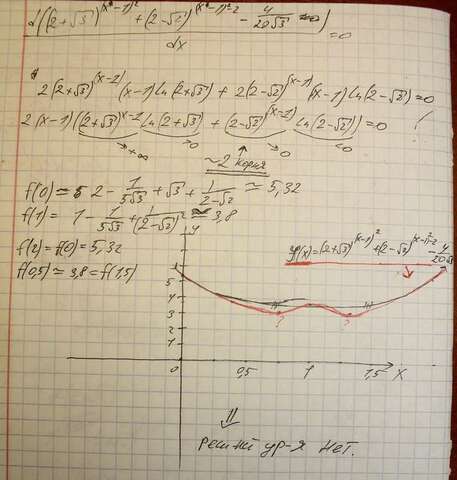 d((2+√3)^(x-1)² + (2-√2)^(x-1)²-2 - 4/20√3) =0
dx
2(2+√3)^(x-1) (x-1) ln(2+√3) + 2(2-√2)^(x-1) (x-1) ln(2-√2)=0
2(x-1)((2+√3)^(x-1) ln(2+√3) + (2-√2)^(x-1) ln(2-√2))=0
→+∞ >0 →0 <0
~2 корня
f(0) ≈ 2 - 1/5√3 + √3 + 1/2-√2 ≈ 5,32
f(1) = 1 - 1/5√3 + 1/(2-√2)² ≈ 3,8
f(2) = f(0) = 5,32
f(0,5) ≈ 3,8 = f(1,5)
y
f(x) = (2+√3)^(x-1)² + (2-√2)^(x-1)²-2 - 4/20√3
5
4
3
2
1
? ?
0 0,5 1 1,5 x
⇓
решний ур-я нет.